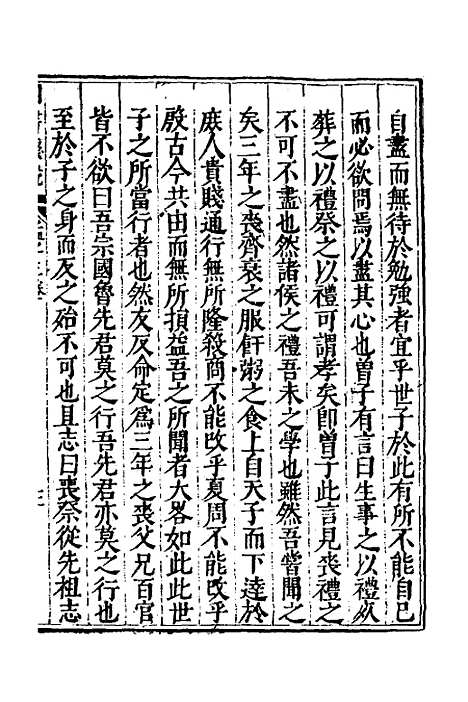 自盡而無待於勉強者宜乎世子於此有所不能自已
而必欲問焉以盡其心也曾子有言曰生事之以禮死
葬之以禮祭之以禮可謂孝矣即曾子此言見喪禮之
不可不盡也然諸侯之禮吾未之學也雖然吾嘗聞之
矣三年之喪齊衰之服飦粥之食上自天子而下達於
庻人貴賤通行無所隆殺商不能改乎夏周不能改乎
殷古今共由而無所損益吾之所聞者大畧如此此世
子之所當行者也然友反命定爲三年之喪父兄百官
皆不欲曰吾宗國魯先君莫之行吾先君亦莫之行也
至於子之身而反之殆不可也且志曰喪祭從先祖志